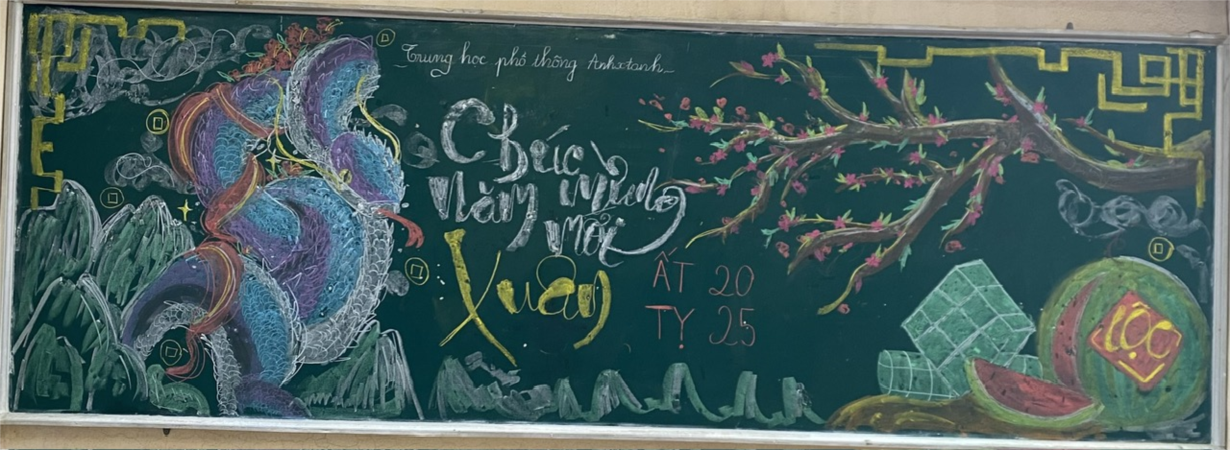 Trung học phổ thông Anhxtanh
Chúc mừng
năm mới
Xuân
ẤT 20
TỴ 25
LỘC